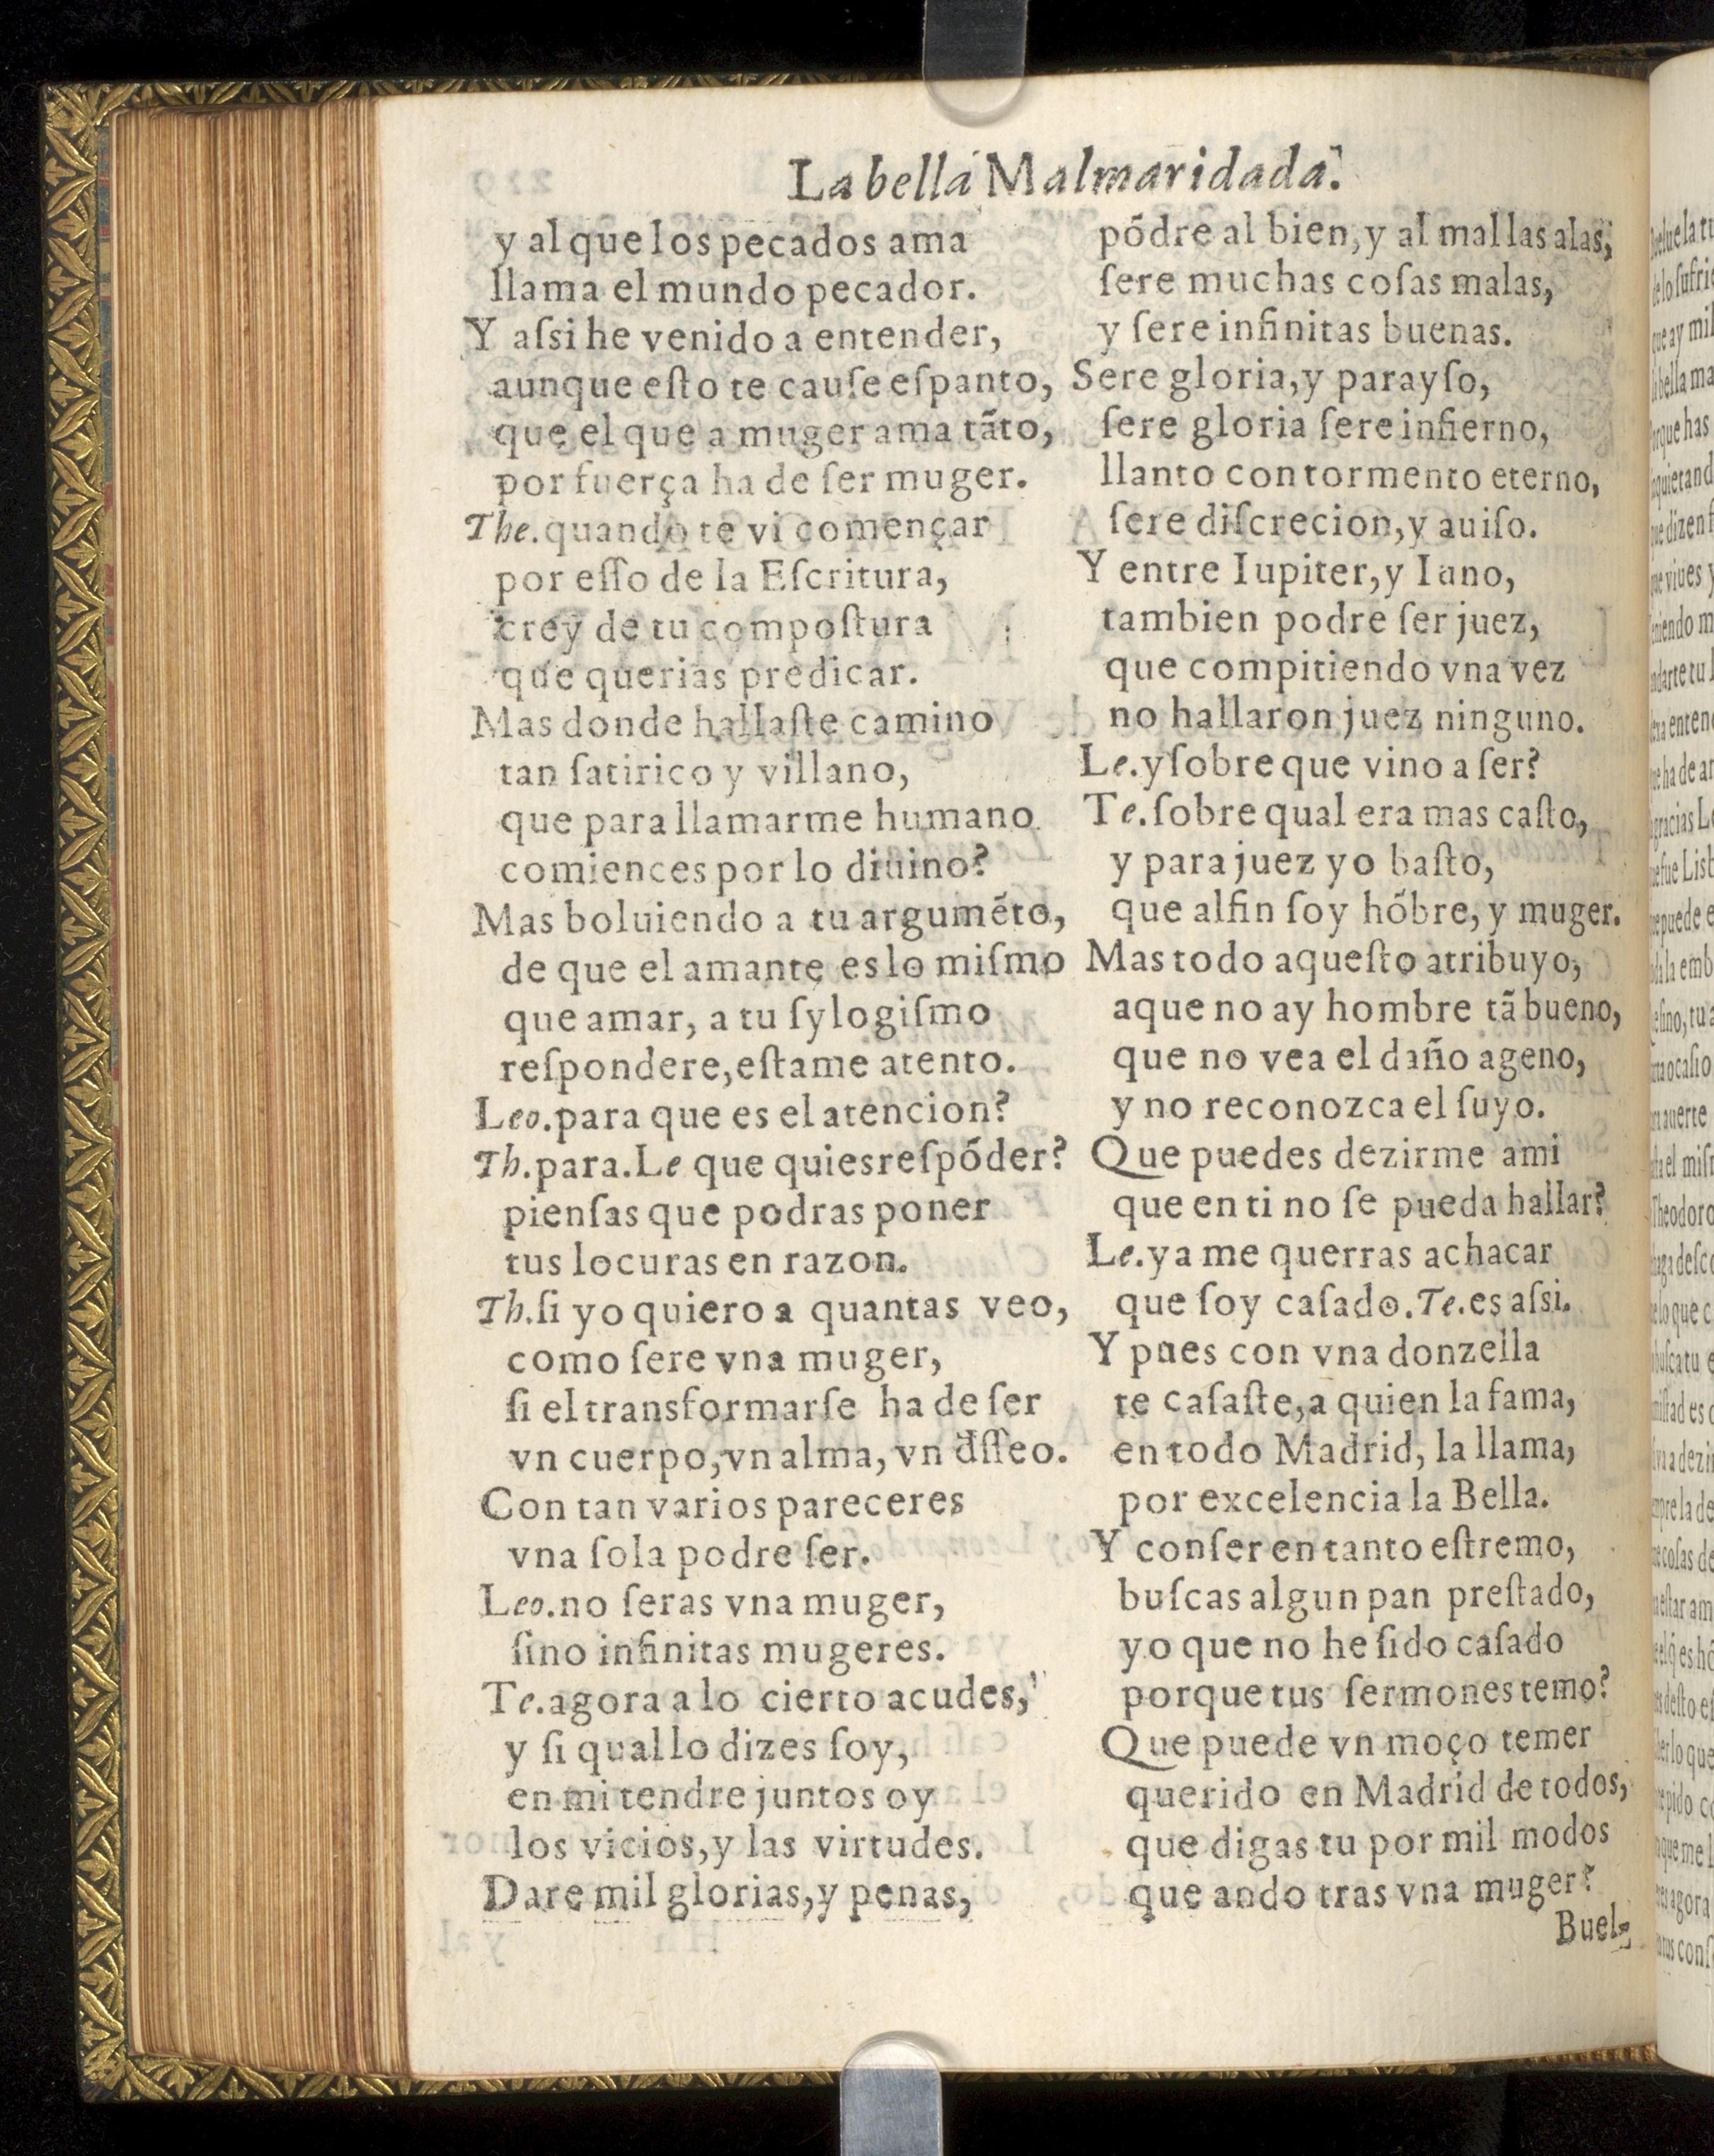 La bella Malmaridada.
y al que los pecados ama
llama el mundo pecador.
Y aſsi he venido a entender,
aunque eſto te cauſe eſpanto,
que el que a muger ama tãto,
por fuerça ha de ſer muger.
The.quando te vi començar
por eſſo de la Eſcritura,
crey de tu compoſtura
que querias predicar.
Mas donde hallaſte camino
tan ſatirico y villano,
que para llamarme humano
comiences por lo diuino?
Mas boluiendo a tu argumẽto,
de que el amante es lo miſmo
que amar, a tu ſylogiſmo
reſpondere,eſtame atento.
Leo.para que es el atencion?
Th.para.Le que quies reſpõder?
pienſas que podras poner
tus locuras en razon.
Th.ſi yo quiero a quantas veo,
como ſere vna muger,
ſi el transformarſe ha de ſer
vn cuerpo,vn alma, vn d̃ſſeo.
Con tan varios pareceres
vna ſola podre ſer.
Leo.no ſeras vna muger,
ſino infinitas mugeres.
Te.agora a lo cierto acudes,
y ſi qual lo dizes ſoy,
en mi tendre juntos oy
los vicios,y las virtudes.
Dare mil glorias,y penas,
põdre al bien,y al mal las alas,
ſere muchas coſas malas,
y ſere infinitas buenas.
Sere gloria,y parayſo,
ſere gloria ſere infierno,
llanto con tormento eterno,
ſere diſcrecion,y auiſo.
Y entre Iupiter,y Iuno,
tambien podre ſer juez,
que compitiendo vna vez
no hallaron juez ninguno.
Le.y ſobre que vino a ſer?
Te.ſobre qual era mas caſto,
y para juez yo baſto,
que alfin ſoy hõbre, y muger.
Mas todo aqueſto atribuyo,
a que no ay hombre tã bueno,
que no vea el daño ageno,
y no reconozca el ſuyo.
Que puedes dezirme ami
que en ti no ſe pueda hallar?
Le.ya me querras achacar
que ſoy caſado.Te.es aſsi.
Y pues con vna donzella
te caſaſte,a quien la fama,
en todo Madrid, la llama,
por excelencia la Bella.
Y con ſer en tanto eſtremo,
buſcas algun pan preſtado,
yo que no he ſido caſado
porque tus ſermones temo?
Que puede vn moço temer
querido en Madrid de todos,
que digas tu por mil modos
que ando tras vna muger?
Buel-